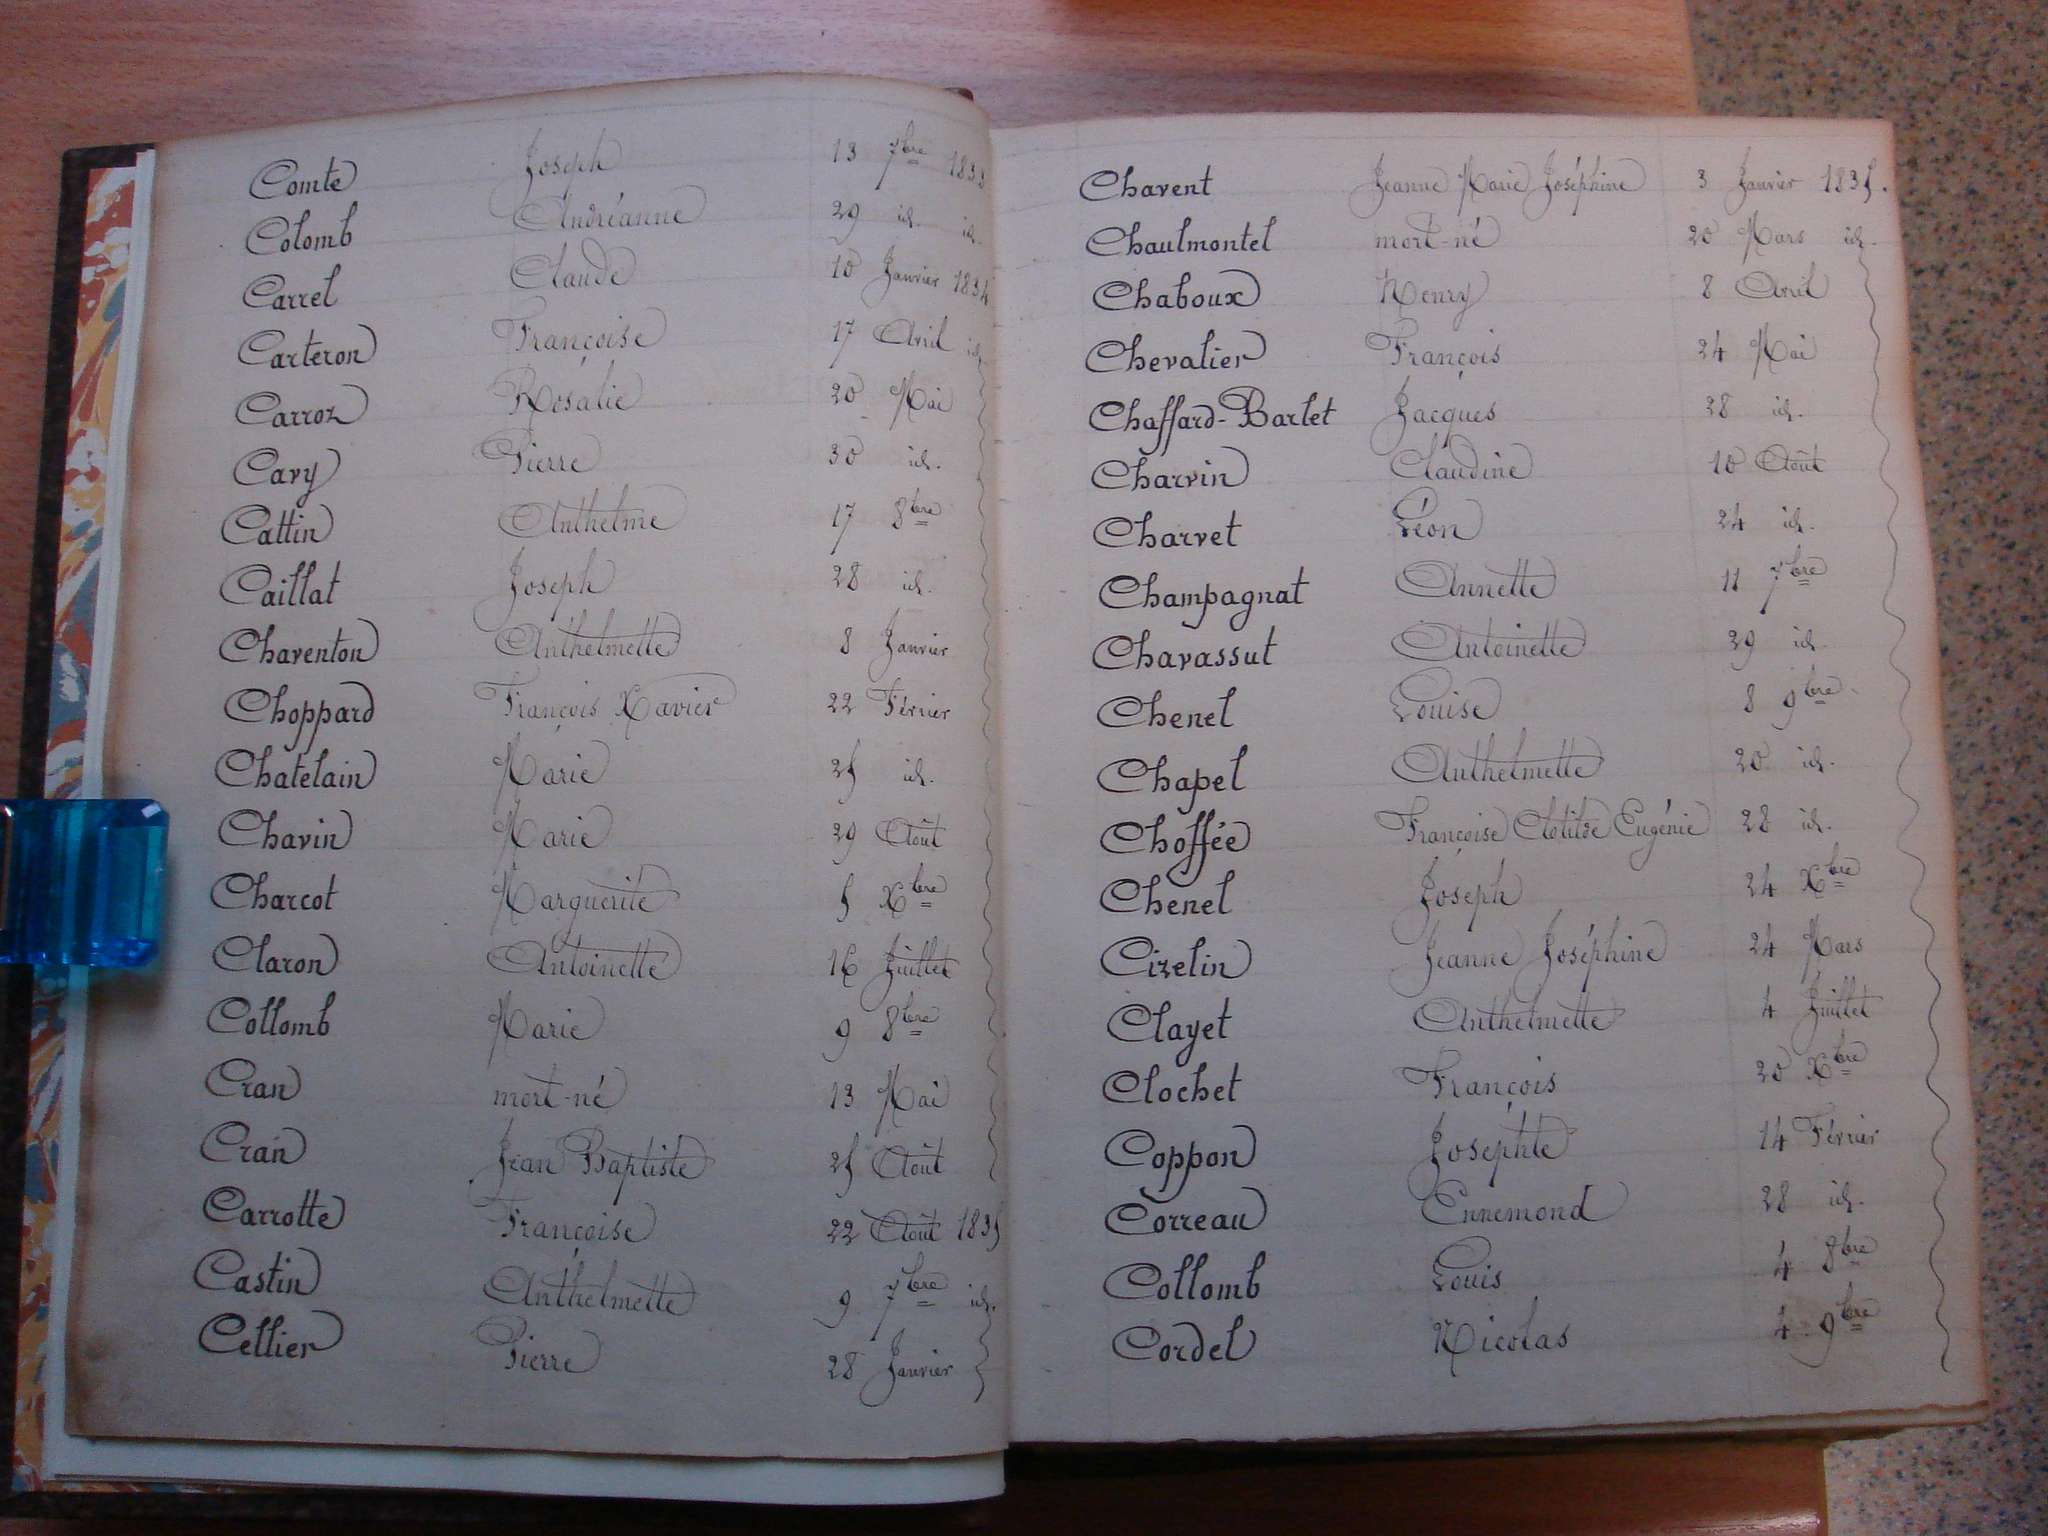 Comte Joseph 13 7bre 1833
Colomb Andréanne 29 id. id.
Carrel Claude 10 Janvier 1834
Carteron Françoise 17 Avril id.
Carroz Rosalie 20 Mai
Cavy Pierre 30 id.
Cattin Anthelme 17 8bre
Caillat Joseph 28 id.
Chaventon Anthelmette 8 Janvier
Choppard François Xavier 22 Février
Chatelain Marie 25 id.
Chavin Marie 29 Août
Charcot Marguerite 5 Xbre
Claron Antoinette 16 Juillet
Collomb Marie 9 8bre
Cran mort-né 13 Mai
Cran Jean Baptiste 25 Août
Carrotte Françoise 22 Août 1835
Castin Anthelmette 9 7bre id.
Cellier Pierre 28 Janvier
Chavent Jeanne Marie Joséphine 3 Janvier 1835.
Chaulmontel mort-né 20 Mars id.
Chaboux Henry 8 Avril
Chevalier François 24 Mai
Chaffard-Barlet Jacques 28 id.
Charvin Claudine 10 Août
Charvet Léon 24 id.
Champagnat Annette 11 7bre
Chavassut Antoinette 29 id.
Chenel Louise 8 9bre
Chapel Anthelmette 20 id.
Choffée Françoise Clotilde Eugénie 28 id.
Chenel Joseph 24 Xbre
Cizelin Jeanne Joséphine 24 Mars
Clayet Anthelmette 4 Juillet
Clochet François 20 Xbre
Coppon Josephte 14 Février
Correau Ennemond 28 id.
Collomb Louis 4 8bre
Cordel Nicolas 4 9bre